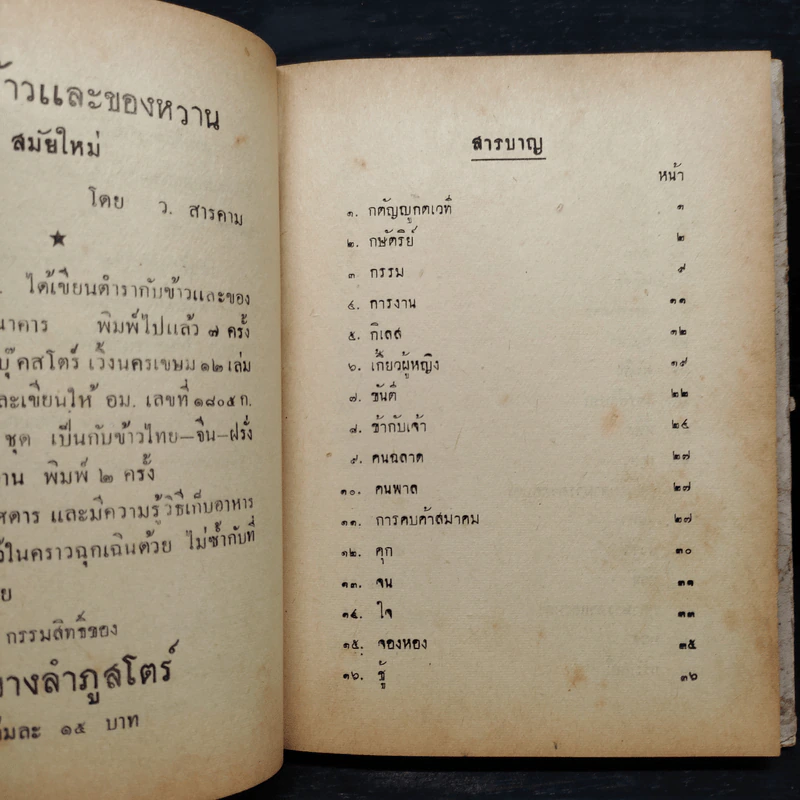 ้าวและของหวาน
สมัยใหม่
โดย ว. สารคาม
★
. ได้เขียนตำรากับข้าวและของ
นาคาร พิมพ์ไปแล้ว ๗ ครั้ง
บุ๊คสโตร์ เวิ้งนครเขษม ๑๒ เล่ม
ละเขียนให้ อม. เลขที่ ๑๘๐๕ ก.
ชุด เป็นกับข้าวไทย–จีน–ฝรั่ง
าน พิมพ์ ๒ ครั้ง
ศดาร และมีความรู้วิธีเก็บอาหาร
ว้ในคราวฉุกเฉินด้วย ไม่ซ้ำกับที่
ย
กรรมสิทธิ์ของ
บางลำภูสโตร์
ล่มละ ๑๕ บาท
สารบาญ
หน้า
๑. กตัญญูกตเวที ๑
๒. กษัตริย์ ๒
๓ กรรม ๙
๔. การงาน ๑๑
๕. กิเลส ๑๒
๖. เกี้ยวผู้หญิง ๑๙
๗. ขันติ ๒๒
๘. ข้ากับเจ้า ๒๔
๙. คนฉลาด ๒๗
๑๐. คนพาล ๒๗
๑๑. การคบค้าสมาคม ๒๗
๑๒. คุก ๓๐
๑๓. จน ๓๑
๑๔. ใจ ๓๓
๑๕. จองหอง ๓๕
๑๖. ชู้ ๓๖